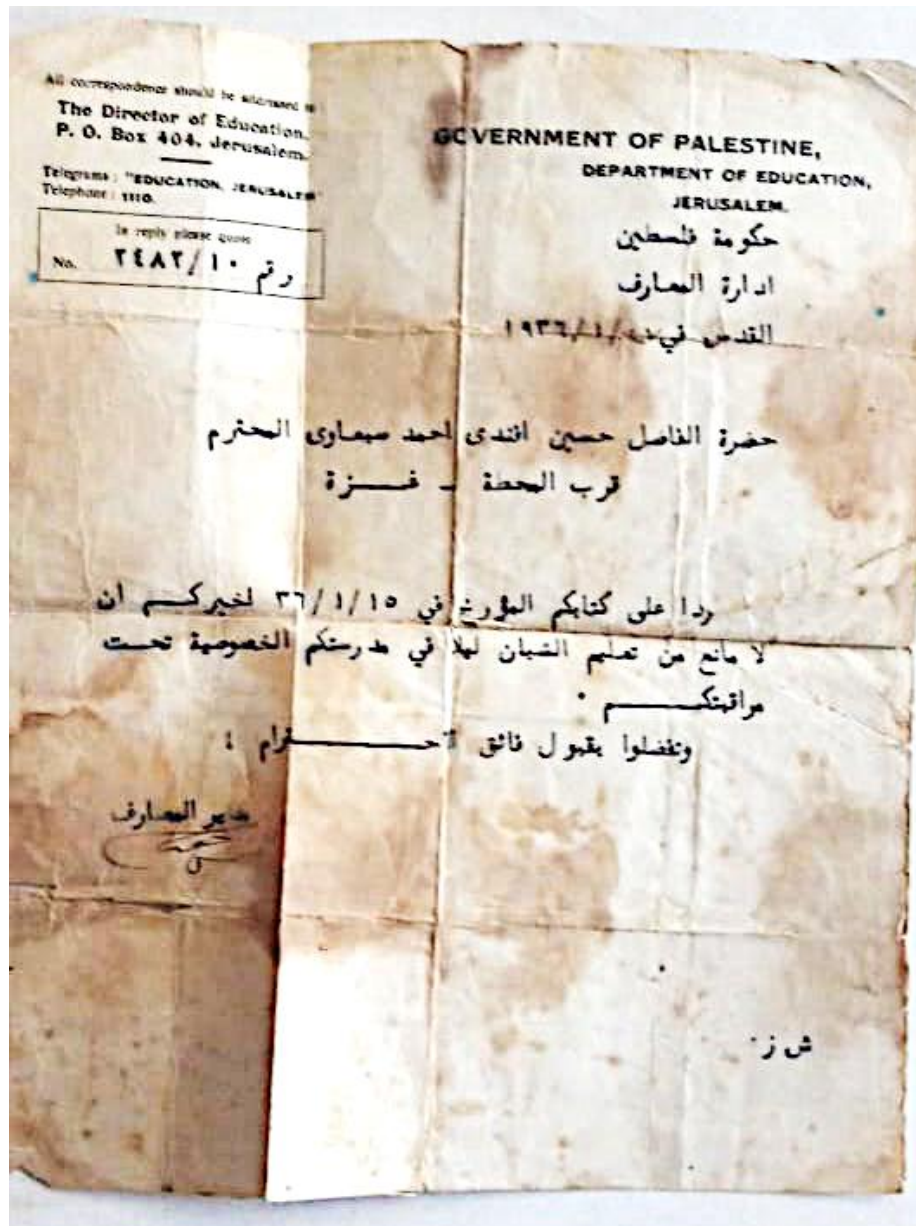 All correspondence should be addressed to :
The Director of Education,
P. O. Box 404, Jerusalem.
Telegrams : "EDUCATION, JERUSALEM"
Telephone : 1110.
In reply please quote
No. رقم ٢٤٨٢/١٠
GOVERNMENT OF PALESTINE,
DEPARTMENT OF EDUCATION,
JERUSALEM.
حكومة فلسطين
ادارة المعارف
القدس في /١/١٩٣٦
حضرة الفاضل حسين افندى احمد المحترم
قرب المحطة - غـــزة
ردا على كتابكم المؤرخ في ٣٦/١/١٥ اخبركـــم ان
لا مانع من تعليم الشبان ليلا في مدرستكم الخصوصية تحـــت
مراقبتكــــــم ٠
وتفضلوا بقبول فائق الاحـــــــترام ؛
مدير المعارف
ش ز٠